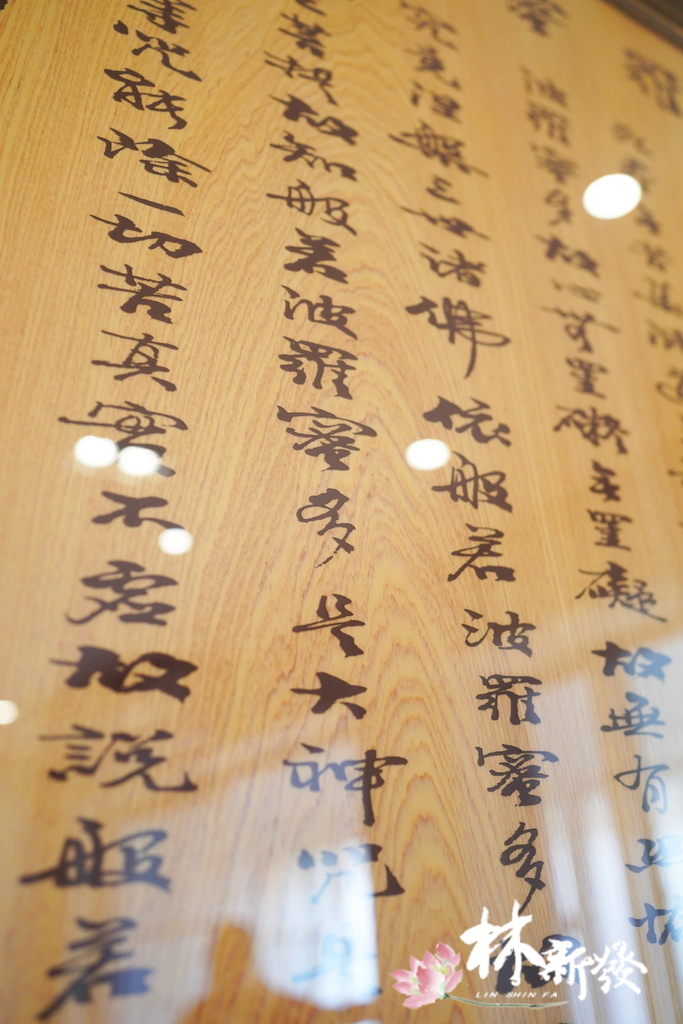 羅
蜜
波羅蜜多故心無罣礙無罣礙故無有恐怖
究竟涅槃三世諸佛依般若波羅蜜多
菩提故知般若波羅蜜多是大神咒是
咒能除一切苦真實不虛故說般若
林新發
LIN SHIN FA